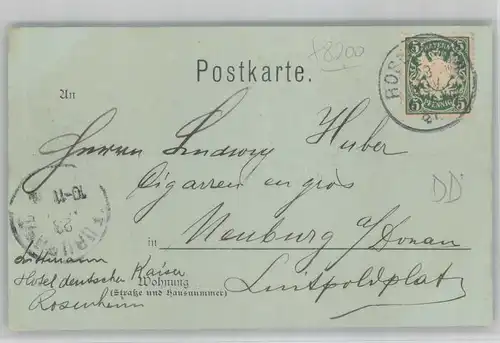 +8200
Postkarte.
BAYERN
5 5
PFENNIG
5 5
An
Herrn Ludwig Huber
Cigarren en gros
DD
in Neuburg a/Donau
Luitpoldplatz
10-11
23
Hotel deutscher Kaiser
Rosenheim
Wohnung
(Straße und Hausnummer)